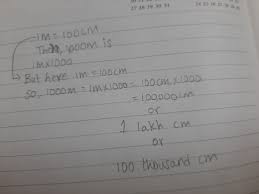 27 28 29 30 31
1m = 100cm
Then, 1000m is
1m x 1000
But here 1m = 100cm
So, 1000m = 1m x 1000 = 100cm x 1000
= 100,000 cm
or
1 lakh cm
or
100 thousand cm